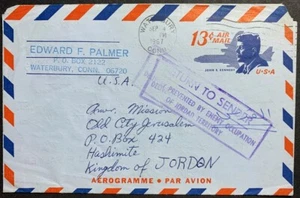 WATERBURY
SEP
PM
1967
CONN.
13¢ AIR
MAIL
JOHN F. KENNEDY
U·S·A
EDWARD F. PALMER
P. O. BOX 2122
WATERBURY, CONN. 06720
U.S.A.
RETURN TO SENDER
PREVENTED BY ENEMY OCCUPATION
OF JORDAN TERRITORY
Amr. Mission
Old City Jerusalem
P.O.Box 424
Hashimite
Kingdom of JORDON
AEROGRAMME • PAR AVION